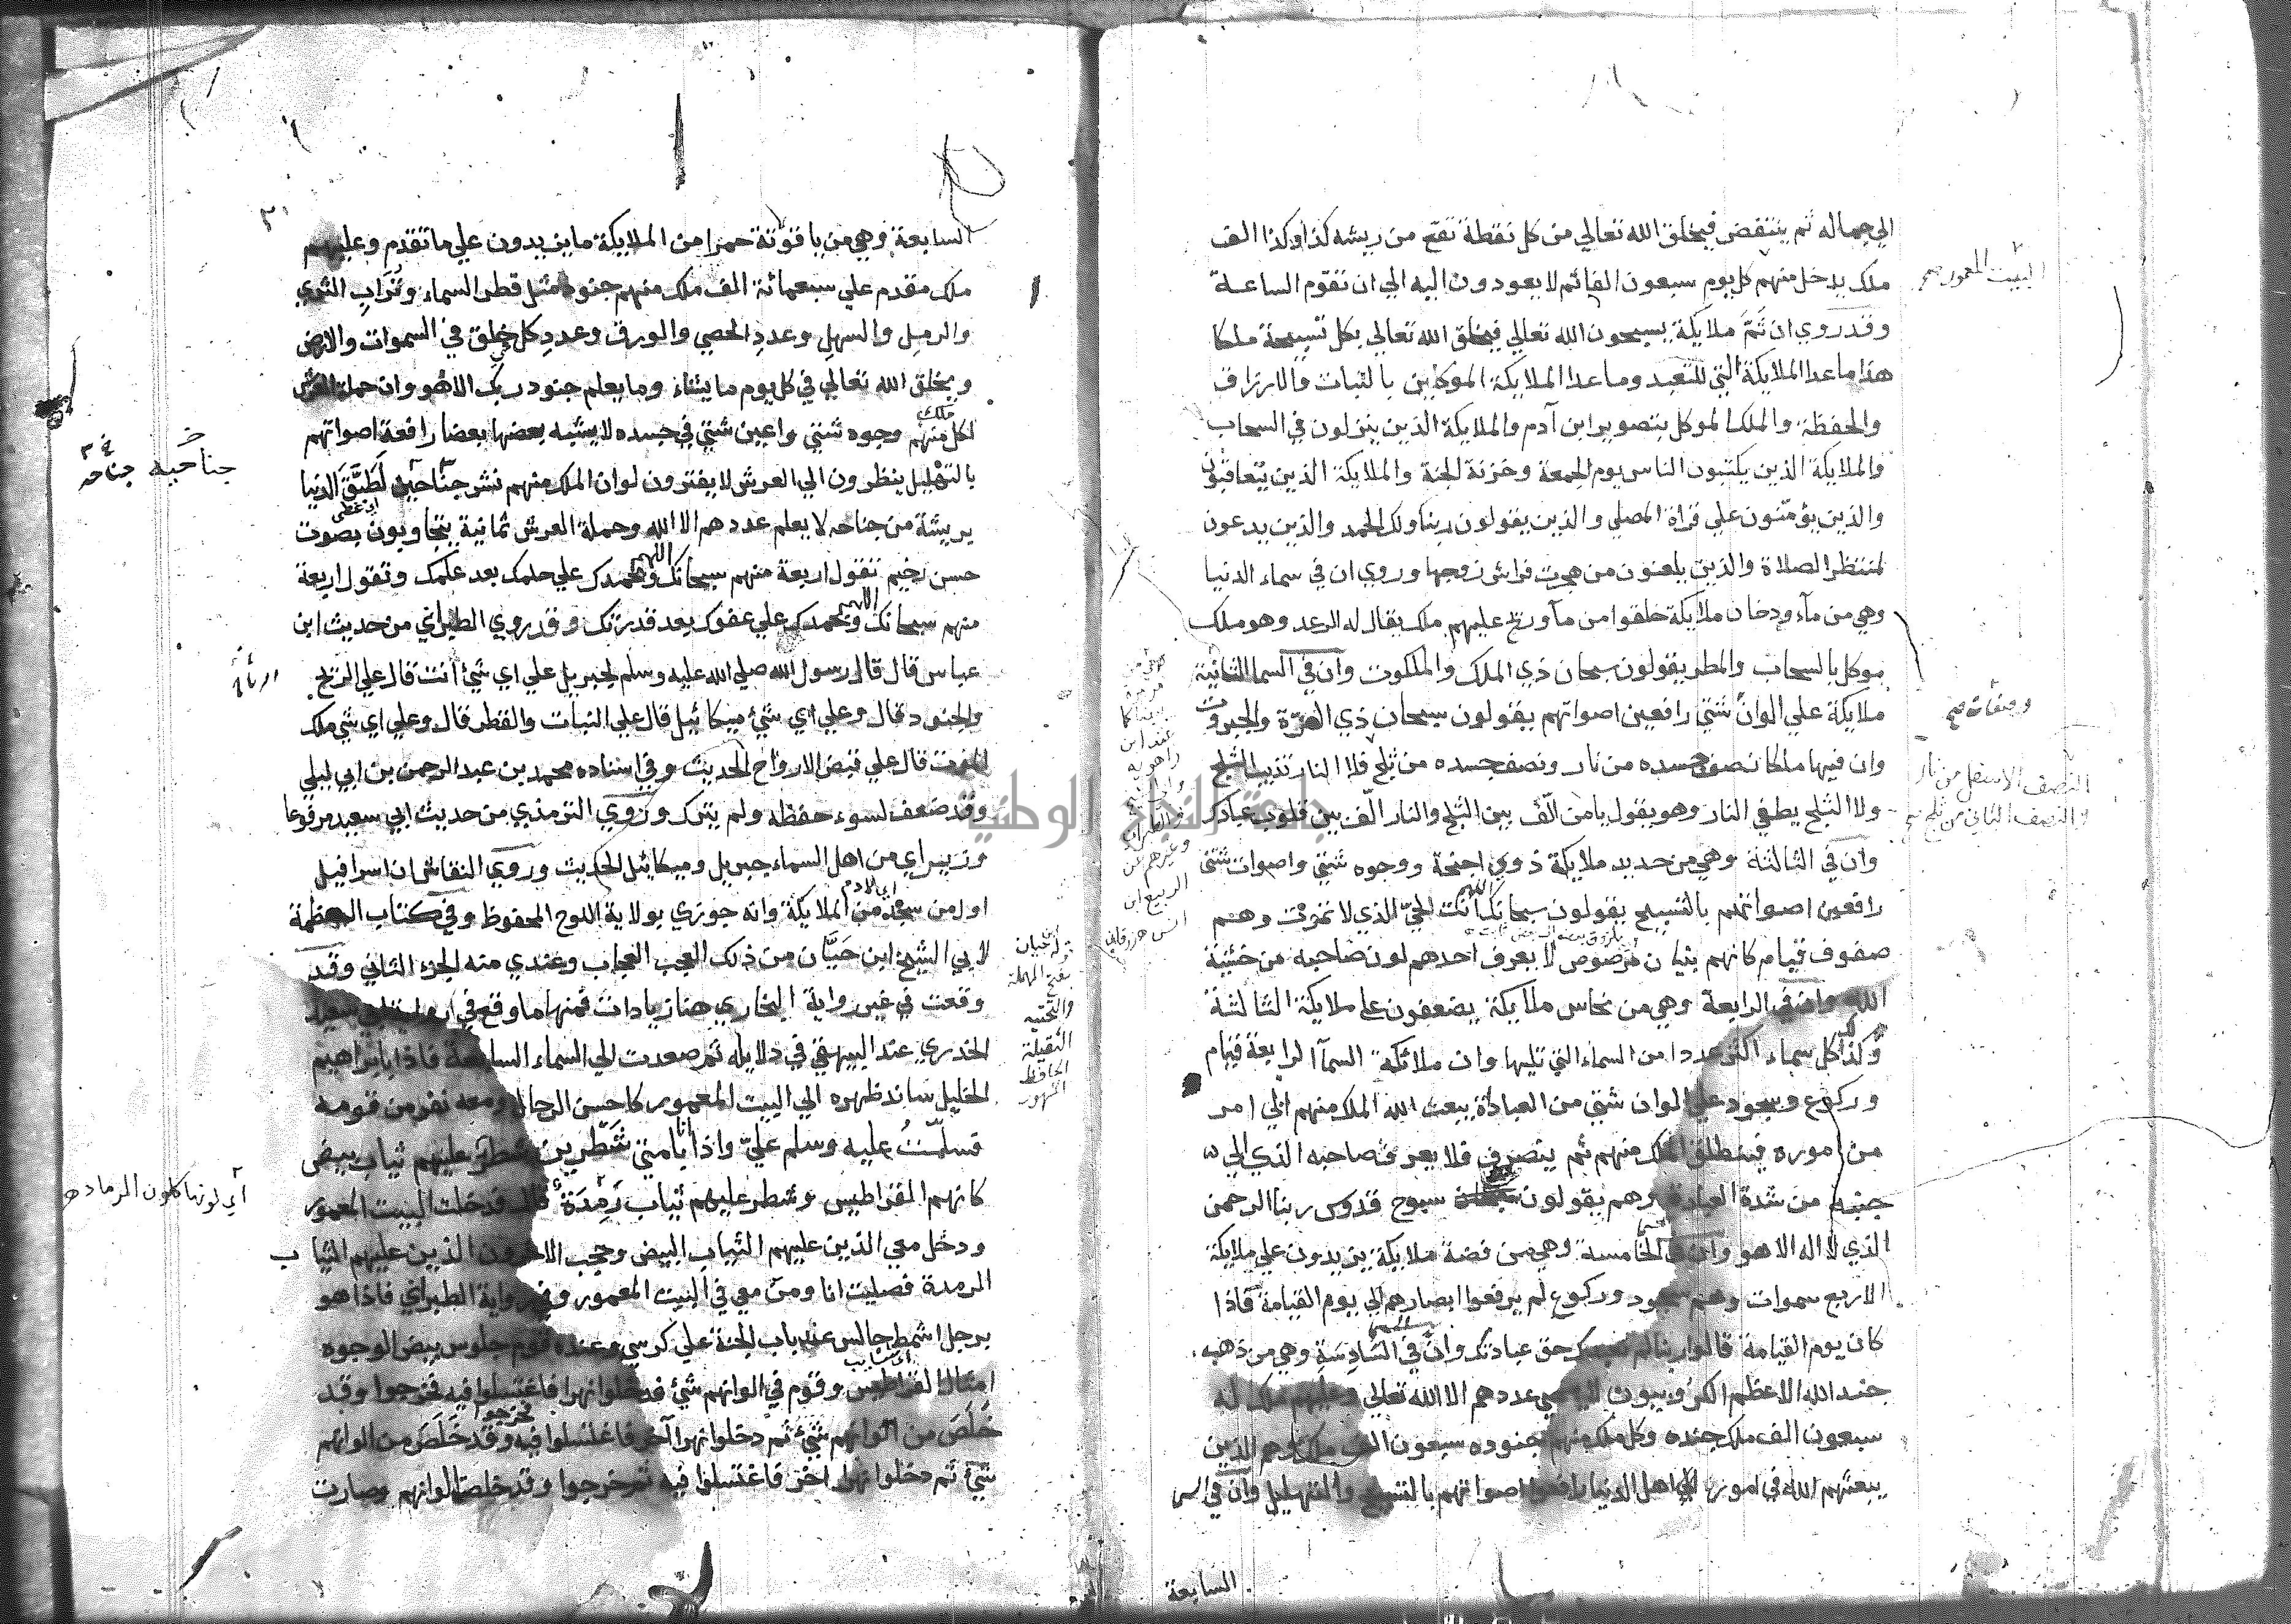 الي جماله ثم ينتفض فيخلق الله تعالي من كل نقطة تقع من ريشه كذا وكذا الف
ملك يدخل منهم كل يوم سبعون الفا ثم لا يعودون اليه الي ان تقوم الساعة
البيت المعمور صح
وقد روي ان ثَمَّ ملايكة يسبحون الله تعالي فيخلق الله تعالي بكل تسبيحة ملكا
هذا ما عدا الملايكة التي للتعبد وما عدا الملايكة الموكلين بالنبات والارزاق
والحفظة والملك الموكل بتصوير ابن آدم والملايكة الذين ينزلون في السحاب
والملايكة الذين يكتبون الناس يوم الجمعة وخزنة الجنة والملايكة الذين يتعاقبون
والذين يؤمنون علي قراة المصلي والذين يقولون ربنا ولك الحمد والذين يدعون
لمنتظر الصلاة والذين يلعنون من هجرت فراش زوجها وروي ان في سماء الدنيا
وهي من مآء ودخان ملايكة خلقوا من مآ وريح عليهم ملك يقال له الرعد وهو ملك
موكل بالسحاب والمطر يقولون سبحان ذي الملك والملكوت وان في السما الثانية
ملايكة علي الوان شتي رافعين اصواتهم يقولون سبحان ذي العزة والجبروت
وان فيها ملكا نصف جسده من نار ونصف جسده من ثلج فلا النار تذيب الثلج
النصف الاسفل من نار
والنصف الثاني من ثلج صح
ولا الثلج يطفي النار وهو يقول يا من الّف بين الثلج والنار الّف بين قلوب عبادك
وان في الثالثة وهي من حديد ملايكة ذوي اجنحة ووجوه شتي واصوات شتي
رافعين اصواتهم بالتسبيح يقولون سبحانك اللهم انت الحيّ الذي لا تموت وهم
صفوف قيام كانهم بنيان مرصوص لا يعرف احدهم لون صاحبه من خشية
الله وان في الرابعة وهي من نحاس ملايكة يضعفون علي ملايكة الثالثة
وكذا كل سماء اكثر عددا من السماء التي تليها وان ملائكة السمآ الرابعة قيام
وركوع وسجود علي الوان شتي من العبادة يبعث الله الملك منهم الي امر
من اموره فينطلق الملك منهم ثم ينصرف فلا يعرف صاحبه الذي الي
جنبه من شدة العبادة وهم يقولون سبوح قدوس ربنا الرحمن
الذي لا اله الا هو وان في الخامسة وهي من فضة ملايكة يزيدون علي ملايكة
الاربع سموات وهم سجود وركوع لم يرفعوا ابصارهم الي يوم القيامة فاذا
كان يوم القيامة قالوا ربنا لم نعبدك حق عبادتك وان في السَّادِسَةِ وهي من ذهب
جند الله الاعظم الكروبيون لا يحصي عددهم الا الله تعالي وعليهم ملك له
سبعون الف ملك جنده وكل ملك منهم جنوده سبعون الف ملك وهم الذين
يبعثهم الله في اموره الي اهل الدنيا رافعوا اصواتهم بالتسبيح والتهليل وان في
السابعة
السابعة وهي من ياقوتة حمرا من الملايكة ما يزيدون علي ما تقدم وعليهم
ملك مقدم علي سبعمائة الف ملك منهم جنوده مثل قطر السماء وتُرَابِ الثري
والرمل والسهل وعددِ الحصي والورق وعددِ كل خلق في السموات والارض
ويخلق الله تعالي في كل يوم ما يشاء وما يعلم جنود ربك الا هو وان حملة العرش
لكل ملك منهم وجوه شتي واعين شتي في جسده لا يشبه بعضها بعضا رافعة اصواتهم
بالتهْليل ينظرون الي العرش لا يفترون لو ان الملك منهم نشر جناحيه لَطَبَّقَ الدنيا
جناحيه جناحه
اي غطي
بريشة من جناحه لا يعلم عددهم الا الله وحملة العرش ثمانية يتجاوبون بصوت
حسن رخيم تقول اربعة منهم سبحانك اللهم وبحمدك علي حلمك بعد علمك وتقول اربعة
منهم سبحانك اللهم وبحمدك علي عفوك بعد قدرتك وقد روي الطبراني من حديث ابن
عباس قال قال رسول الله صلي الله عليه وسلم لجبريل علي اي شيْ انت قال علي الريح
والجنود قال وعلي اي شيْ ميكائيل قال علي النبات والقطر قال وعلي اي شي ملك
الموت قال علي قبض الارواح الحديث وفي اسناده محمد بن عبد الرحمن بن ابي ليلي
وقد ضعف لسوء حفظه ولم يترك وروي الترمذي من حديث ابي سعيد مرفوعا
وزيراي من اهل السماء جبريل وميكائيل الحديث وروي النقاش ان اسرافيل
اول من سجد من الملايكة وانه جوزي بولاية اللوح المحفوظ وفي كتاب العظمة
اي لادم
لابي الشيخ ابن حَيَّان من ذلك العجب العجاب وعندي منه الجزء الثاني وقد
وقعت في غير رواية البخاري هنا زيادات فمنها ما وقع في رواية ابي سعيد
الخدري عند البيهقي في دلايله ثم صعدت الي السماء السابعة فاذا بابراهيم
الخليل ساند ظهره الي البيت المعمور كاحسن الرجال ومعه نفر من قومه
فسلمتُ عليه وسلم عليّ واذا بامتي شَطْرين شطر عليهم ثياب بيض
كانهم القراطيس وشطر عليهم ثياب رَمِدَة قال فدخلت البيت المعمور
اي لونها كلون الرماد
ودخل معي الذين عليهم الثياب البيض وحجب الاخرون الذين عليهم الثياب
الرمدة فصليت انا ومن معي في البيت المعمور وفي رواية الطبراني فاذا هو
برجل اشمط جالس عند باب الجنة علي كرسي وعنده قوم جلوس بيض الوجوه
امثال القراطيس وقوم في الوانهم شيْ فدخلوا نهرا فاغتسلوا فيه فخرجوا وقد
خَلَصَ من الوانهم شيْ ثم دخلوا نهرا آخر فاغتسلوا فيه فخرجوا وقد خَلَصَ من الوانهم
شيْ ثم دخلوا نهرا اخر فاغتسلوا فيه فخرجوا وقد خلصت الوانهم وصارت
بفتح المهملة
والتحتيه
الثقيلة
الحافظ
المشهور
جامعة النجاح الوطنية